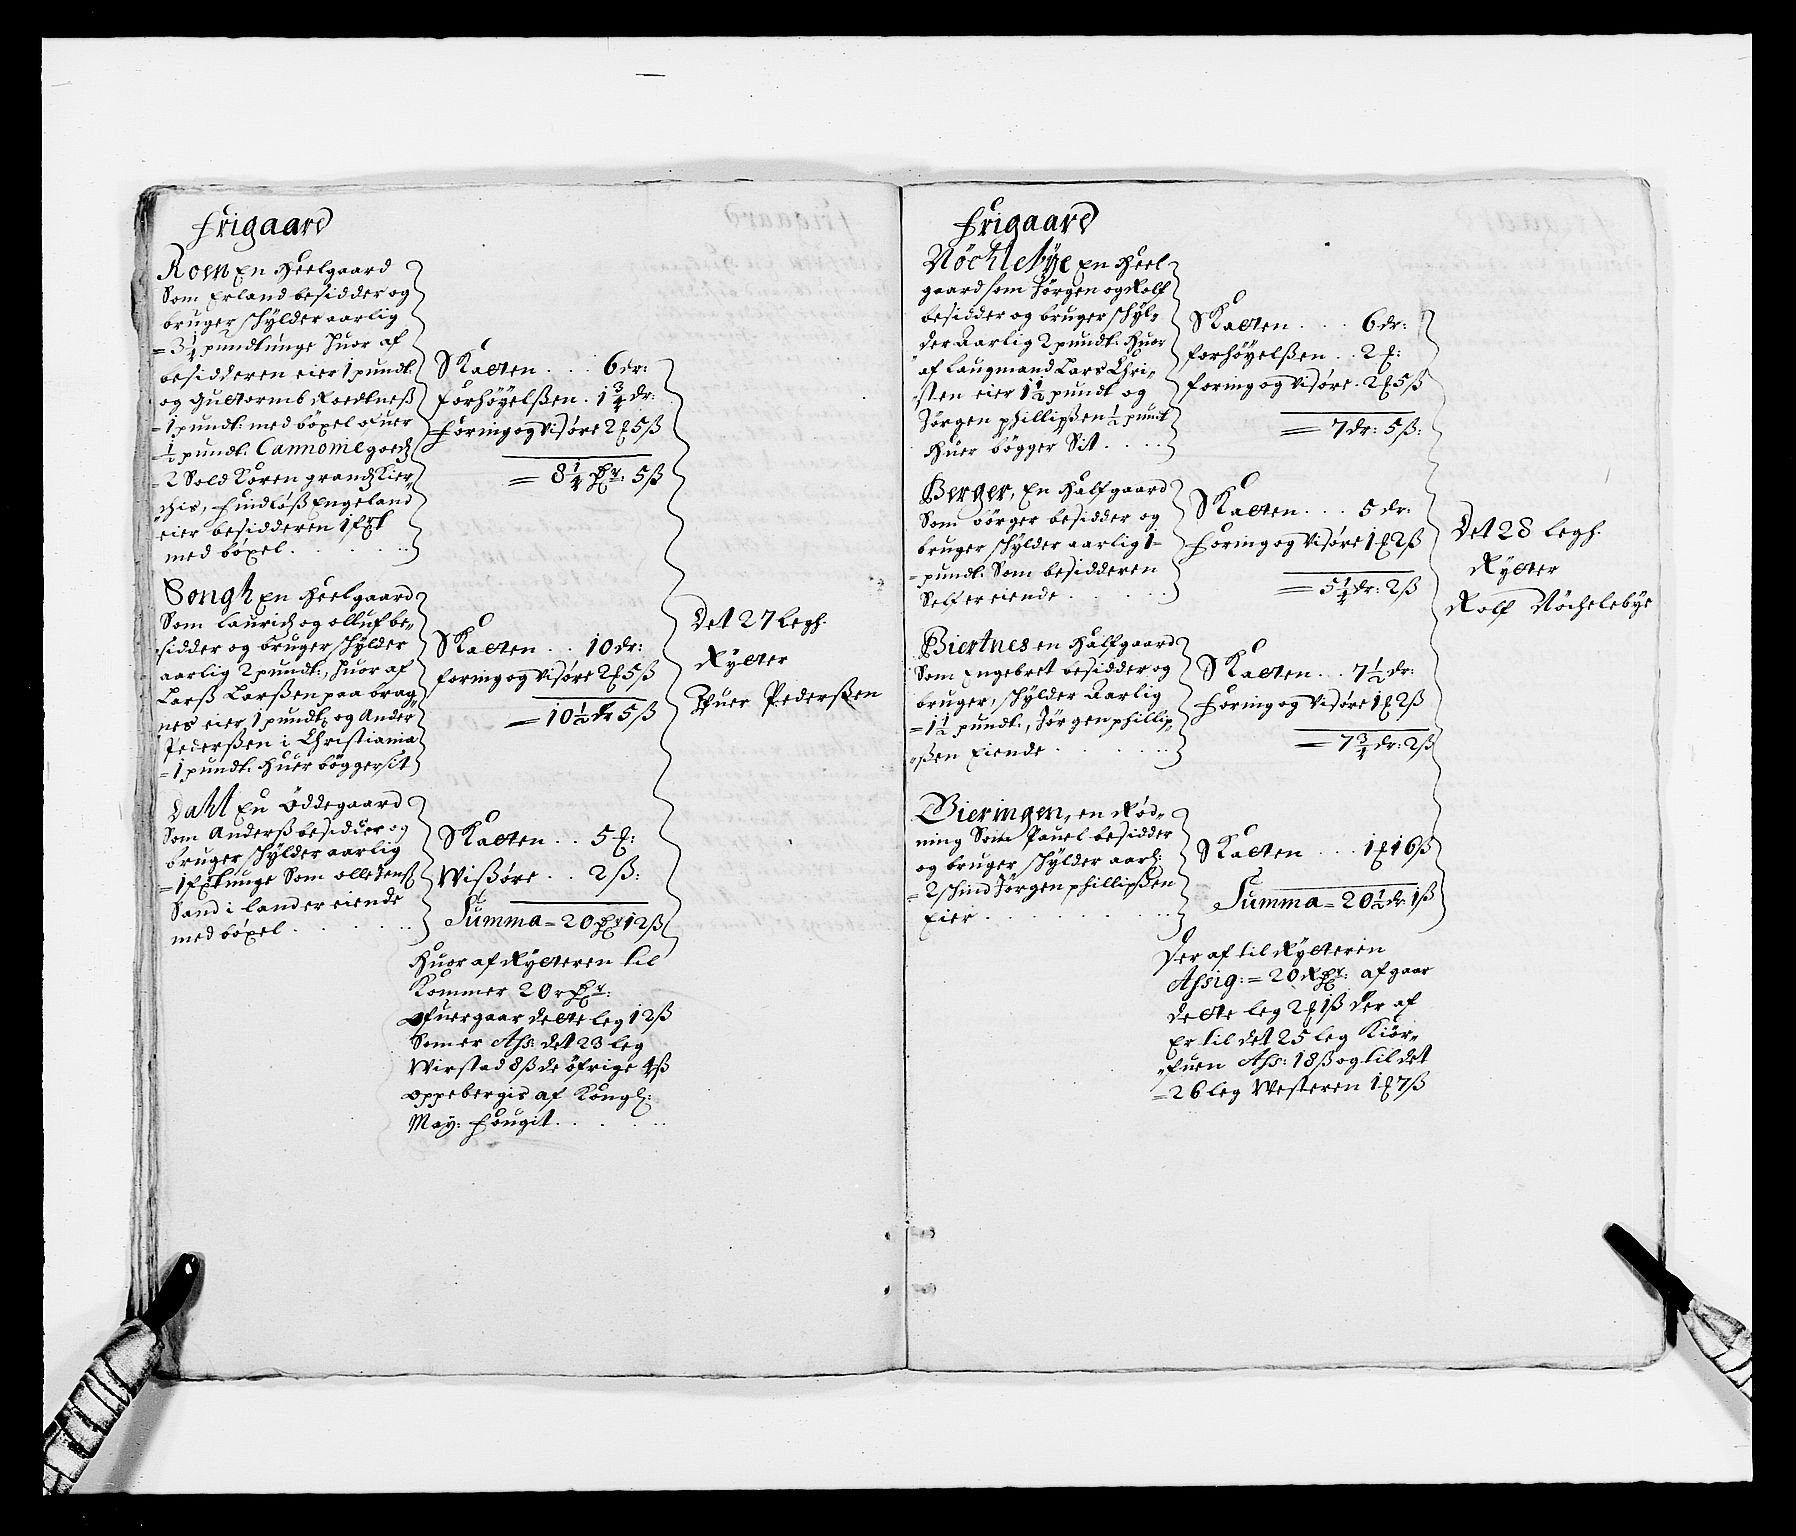 Frigaard
Roen En Heelgaard
Som Erland besidder og
bruger schylder aarlig
= 3 1/4 pundtunge huor af
besidderen eier 1 pundt:
og Guttormb Roedtneß
= 1 pundt: med böxel ofuer
1/2 pundt: Cannonie goedz
= 2 Sold Koren grandz Kier-
chis, Engeland
eier besidderen 1 frt
med böxel . . . .
Skatten . . . 6 dr:
Forhöyelßen . 1 3/4 dr:
Foring og Visöre 2 ₰ 5 ß
= 8 1/4 Rdr: 5 ß
Songh En Heelgaard
Som Lauridz og Olluf be-
sidder og bruger schylder
aarlig 2 pundt:, huor af
Larß Larßen paa brag
nes eier 1 pundt: og Ander
Pederßen i Christiania
= 1 pundt: Huer böggersit
Skatten . . 10 dr:
foring og Visöre 2 ₰ 5 ß
= 10 1/2 dr 5 ß
Det 27 Legh:
Rytter
Ifuer Pederßen
Dahl En Öddegaard
Som Anderß besidder og
bruger schylder aarlig
= 1 frtunge Som olle Jenß
Sand i land er eiende
med böxel . . . .
Skatten . . 5 ₰:
Wißöre . . 2 ß:
Summa = 20 Rdr 12 ß
Huor af Rytteren til
Kommer 20 rdr:
Ofuergaar dette leg 12 ß
Som er Ass: det 23 leg
Wirstad 8 ß de öfrige 4 ß
Oppebergis af Kongl:
May: Fougit . . . .
Frigaard
Nöchlebye En Heel
gaard som Jörgen og Rolf
besidder og bruger schyl-
der Aarlig 2 pundt: Huor
af Laugmand Lars Chri-
sten eier 1 1/2 pundt og
Jörgen phillipßen 1/2 pundt
Huer bögger Sit . . . .
Skatten . . . 6 dr:
forhöyelßen . . 2 ₰:
foring og Visöre . 2 ₰ 5 ß
= 7 dr: 5 ß:
Berger, En Halfgaard
Som börger besidder og
bruger schylder aarlig 1
= pundt: Som besidderen
Self er eiende . . . .
Skatten . . . 5 dr:
Foring og Visöre 1 ₰ 2 ß
= 5 1/4 dr: 2 ß
Det 28 Legh:
Rytter
Rolf Nöchelebye
Biertnes en Halfgaard
Som Engebret besidder og
bruger, schylder Aarlig
= 1 1/2 pundt:, Jörgen phillip-
ßen Eiende . . . .
Skatten . . 7 1/2 dr:
Foring og Visöre 1 ₰ 2 ß
= 7 3/4 dr: 2 ß
Bieringen, en Röd-
ning Som Pauel besidder
og bruger schylder aarl:
= 2 schind Jörgen phillipßen
Eier . . . .
Skatten . . . 1 ₰ 16 ß
Summa = 20 1/2 dr 1 ß
Der af til Rytteren
Assig: = 20 Rdr: afgaar
dette leg 2 ₰ 1 ß der af
Er til det 25 leg Kiör-
fuen Ass: 18 ß og til det
= 26 leg Westeren 1 ₰ 7 ß